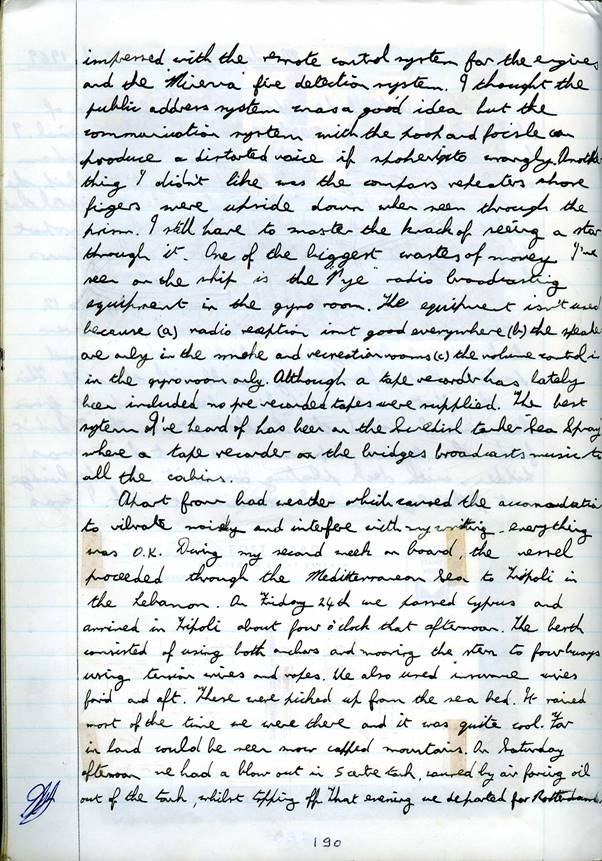 impressed with the remote control system for the engines
and the "Minerva" fire detection system. I thought the
public address system was a good idea but the
communication system with the poop and focsle can
produce a distorted voice if spoken into wrongly. Another
thing I didn't like was the compass repeaters whose
figers were upside down when seen through the
prism. I still have to master the knack of seeing a star
through it. One of the biggest wastes of money I've
seen on the ship is the "Pye" radio broadcasting
equipment in the gyro room. The equipment isn't used
because (a) radio reception isnt good everywhere (b) the speakers
are only in the smoke and recreation rooms (c) the volume control is
in the gyro room only. Although a tape recorder has lately
been included no pre recorded tapes were supplied. The best
system I've heard of has been on the Swedish tanker "Sea Spray"
where a tape recorder on the bridges broadcasts music to
all the cabins.
Apart from bad weather which caused the accomodation
to vibrate noisily and interfere with my writing - everything
was O.K. During my second week on board, the vessel
proceeded through the Mediterranean Sea to Tripoli in
the Lebanon. On Friday 24th we passed Cyprus and
arrived in Tripoli about four o'clock that afternoon. The berth
consisted of using both anchors and mooring the stern to four buoys
using tension wires and ropes. We also used insurance wires
for'd and aft. These were picked up from the sea bed. It rained
most of the time we were there and it was quite cool. Far
in land could be seen snow capped mountains. On Saturday
afternoon we had a blow out in 5 centre tank, caused by air forcing oil
out of the tank, whilst topping off. That evening we departed for Rotterdam.
190